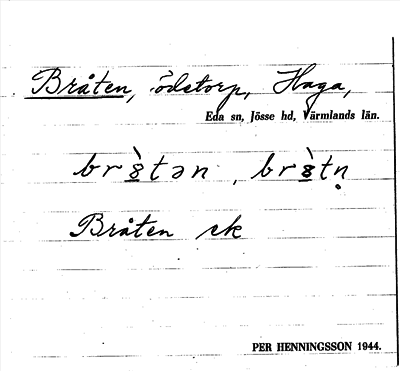 Bråten, ödetorp, Haga,
Eda sn, Jösse hd, Värmlands län.
br8̠̀tən, br8̠̀tn̥
Bråten ek
PER HENNINGSSON 1944.